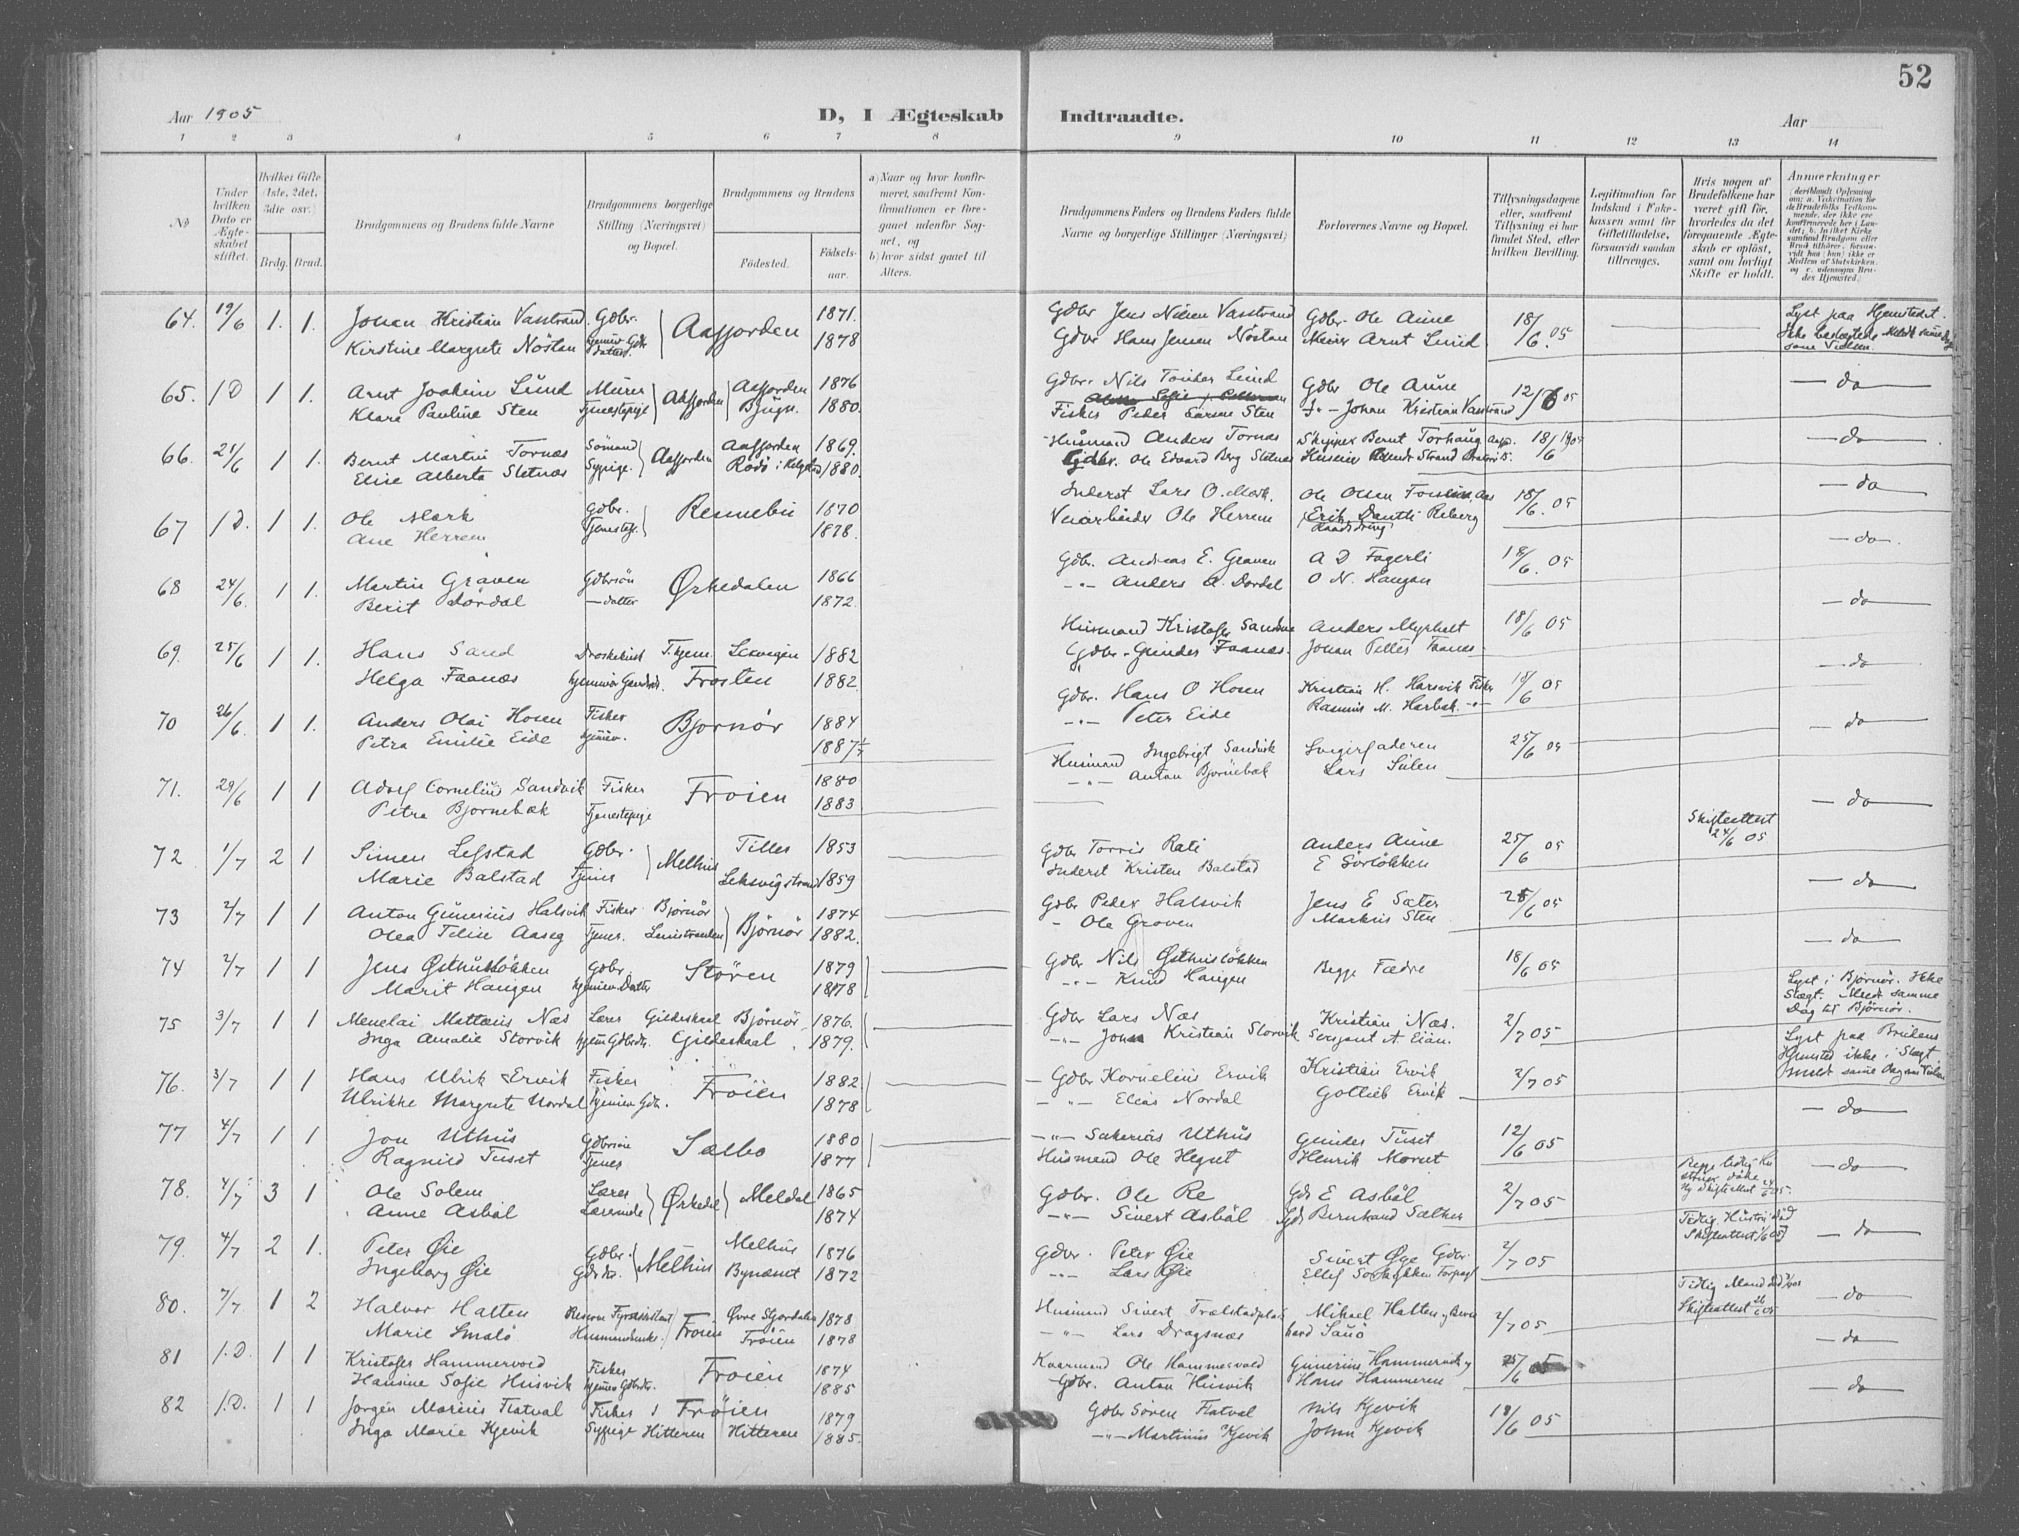 52
Aar 1905
D, I Ægteskab Indtraadte.
Aar
1 2 3 4 5 6 7 8 9 10 11 12 13 14
№
Under hvilken Dato er Ægteskabet stiftet.
Hvilket Gifte (1ste, 2det, 3die osv.)
Brdg. Brud.
Brudgommens og Brudens fulde Navne
Brudgommens borgerlige Stilling (Næringsvei) og Bopæl.
Brudgommens og Brudens
Fødested. Fødselsaar.
a) Naar og hvor konfirmeret, saafremt Konfirmationen er foregaaet udenfor Sognet, og
b) hvor sidst gaaet til Alters.
Brudgommens Faders og Brudens Faders fulde Navne og borgerlige Stillinger (Næringsvei)
Forlovernes Navne og Bopæl.
Tillysningsdagene eller, saafremt Tillysning ei har fundet Sted, efter hvilken Bevilling.
Legitimation for Indskud i Fakkassen samt for Giftetilladelse, forsaavidt saadan tiltrænges.
Hvis nogen af Brudefolkene har været gift før, hvorledes da det foregaaende Ægteskab er opløst, samt om lovligt Skifte er holdt.
Anmærkninger
64. 19/6 1. 1. Johan Kristian Vasstrand Gdbr. Aafjorden 1871. Gdbr Jens Nilsen Vasstrand Gdbr. Ole Aune 18/6 05 Lyst paa Hjemstedet.
Kirstine Margrete Nöstan 1878 Gdbr Hans Jensen Nöstan Murer Arnt Lund
65. 1 D 1 1. Arnt Joakim Lund Murer Aafjorden Aafjorden 1876 Gdbr. Nils Lund Gdbr Ole Aune 12/6 05 — do —
Klara Pauline Sten Tjenestepige Bjugn. 1880. Fisker Peder Sten Johan Kristian Vasstrand
66. 21/6 1 1. Bernt Martin Tornæs Sömand Aafjorden Aafjorden 1869. Husmand Anders Tornæs Skipper Bernt Torhaug 18/6 1905 — do —
Elise Alberta Sletnæs Sypige. Rödö i Helgeland 1880. Gdbr. Ole Edvard Berg Sletnæs Strand
67 1 D. 1 1. Ole Mærk Gdbr. Rennebu 1870 Inderst Lars O. Mærk. Ole Olsen 18/6. 05 — do —
Ane Herrem Tjenestep. 1878. Veiarbeider Ole Herrem Erik Reberg
68 24/6. 1 1. Martin Graven Gdbrsön Örkedalen 1866 Gdbr. Andreas E. Graven A D Fagerli 18/6. 05 — do —
Berit Dördal — datter 1872. — " — Anders A. Dordal O N. Haugan
69. 25/6 1 1. Hans Sand Droskekusk T.hjem Leksvigen 1882 Husmand Kristofer Anders Myrholt 18/6 05 — do —
Helga Faanæs Frosten 1882. Gdbr. Gunder Faanes. Johan Faanes
70 26/6. 1 1. Anders Olai Hosen Fisker Bjørnör 1884 Gdbr. Hans O Hosen Kristian H. Harsvik Fisker 18/6 05 — do —
Petra Emilie Eide hjemv. 1887 — " — Peter Eide Rasmus M. Harbak.
71. 29/6 1 1 Adolf Cornelius Sandvik Fisker Frøien 1880 Husmand Ingebrigt Sandvik Svigerfaderen 25/6 05 — do —
Petra Bjørnebæk Tjenestepige 1883 — " — Anton Bjørnebæk Lars Sulen
72 1/7 2 1 Simen Lefstad Gdbr. Melhus Tiller 1853 Gdbr Torris Rati Anders Aune 25/6 05 Skifteattest 24/6 05 — do —
Marie Balstad Tjener Leksvigstrand 1859 Inderst Kristen Balstad E Sörlökken
73 2/7 1 1 Anton Gunerius Halsvik Fisker Bjørnör Björnör 1874 Gdbr Peder Halsvik Jens E Sæter 25/6 05 — do —
Olea Aaseg Tjener. 1882. - Ole Groven Markus Sten
74 2/7 1 1 Jens Østhuslökken Gdbr. Stören 1879 Gdbr Nils Østhuslökken Begge Fædre 18/6 05 — do —
Marit Haugen hjemv. Datter 1878 — " — Knud Haugen
75 3/7 1 1 Menelai Mattæus Næs Lærer Gildeskaal Björnör 1876. Gdbr Lars Næs Kristian Næs. 2/7 05 Lyst i Björnör. Ikke Slægt. Meldt samme Dag til Björnör.
Inga Amalie Storvik Gildeskaal 1879. — " — Johan Kristian Storvik Sergeant A Eian.
76. 3/7 1 1 Hans Ulrik Ervik Fisker Fröien 1882 Gdbr Kornelius Ervik Kristian Ervik 2/7 05 Lyst paa Brudens Hjemsted ikke i Slægt
Ulrikke Margrete Nordal 1878 — " — Elias Nordal Gotlieb Ervik
77 4/7 1 1 Jon Uthus Gdbrsön Sælbo 1880 — " — Sakarias Uthus Gunder Tuset 12/6 05 — do —
Ragnild Tuset Tjener 1877 Husmand Ole Hegset Henrik Morset
78. 4/7 3 1 Ole Solem Lærer Örkedal Meldal 1865 Gdbr. Ole Re Gdb E Asböl 2/7 05 — do —
Anne Asböl Lærerinde 1874 — " — Sivert Asböl Gdb Bernhard Sæther
79. 4/7 2 1. Peter Øie Gdbr. Melhus Melhus 1876 Gdbr. Peter Øie Sivert Øye Gdbr. 2/7 05 Tidlig. Hustru död Skifteattest 1/6 05 — do —
Ingeborg Øie Gdbdtr. Bynæset 1872 — " — Lars Øie
80. 7/7 1 2 Halvor Halten Reserve Fyrassistent Frøien Øvre Stjordalen 1878 Husmand Sivert Mikael Halten og Bernhard Sauö 2/7 05 Tidlig Mand död Skifteattest 26/6 05 — do —
Marie Smalö Husmandsenke. Fröien 1878 — " — Lars Dragsnæs
81 1. D. 1 1 Kristofer Hammervold Fisker Froien 1874 Kaarmand Ole Hammervold Gunerius Hammervik 25/6 05 — do —
Hansine Sofie Husvik 1885 Gdbr. Anton Husvik Hans Hammeren
82 1. D. 1 1 Jørgen Marius Flatval Fisker Fröien 1879 Gdbr Sören Flatval Nils Kjevik 18/6 05 — do —
Inga Marie Kjevik Sypige Hitteren Hitteren 1885. — " — Martinus Kjevik Johan Kjevik